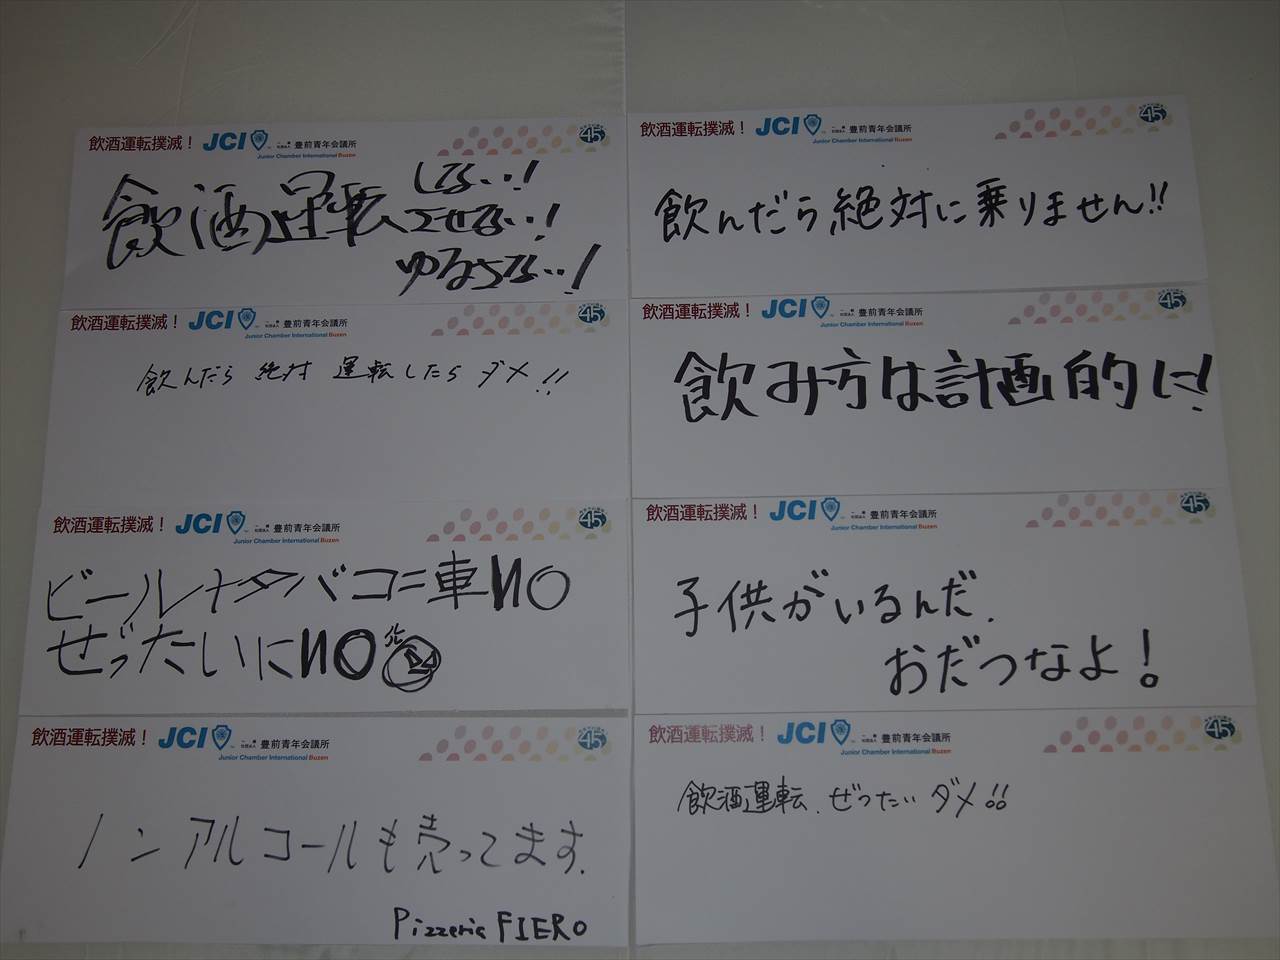 飲酒運転撲滅！ JCI 一般社団法人 豊前青年会議所 45
Junior Chamber International Buzen
飲酒運転 しない！
させない！
ゆるさない！
飲酒運転撲滅！ JCI 一般社団法人 豊前青年会議所 45
Junior Chamber International Buzen
飲んだら 絶対 運転したら ダメ!!
飲酒運転撲滅！ JCI 一般社団法人 豊前青年会議所 45
Junior Chamber International Buzen
ビール+タバコ=車NO
ぜったいにNO
飲酒運転撲滅！ JCI 一般社団法人 豊前青年会議所 45
Junior Chamber International Buzen
ノンアルコールも売ってます.
Pizzeria FIERO
飲酒運転撲滅！ JCI 一般社団法人 豊前青年会議所 45
Junior Chamber International Buzen
飲んだら絶対に乗りません!!
飲酒運転撲滅！ JCI 一般社団法人 豊前青年会議所 45
Junior Chamber International Buzen
飲み方は計画的に!
飲酒運転撲滅！ JCI 一般社団法人 豊前青年会議所 45
Junior Chamber International Buzen
子供がいるんだ.
おだつなよ！
飲酒運転撲滅！ JCI 一般社団法人 豊前青年会議所 45
Junior Chamber International Buzen
飲酒運転、ぜったい ダメ!!